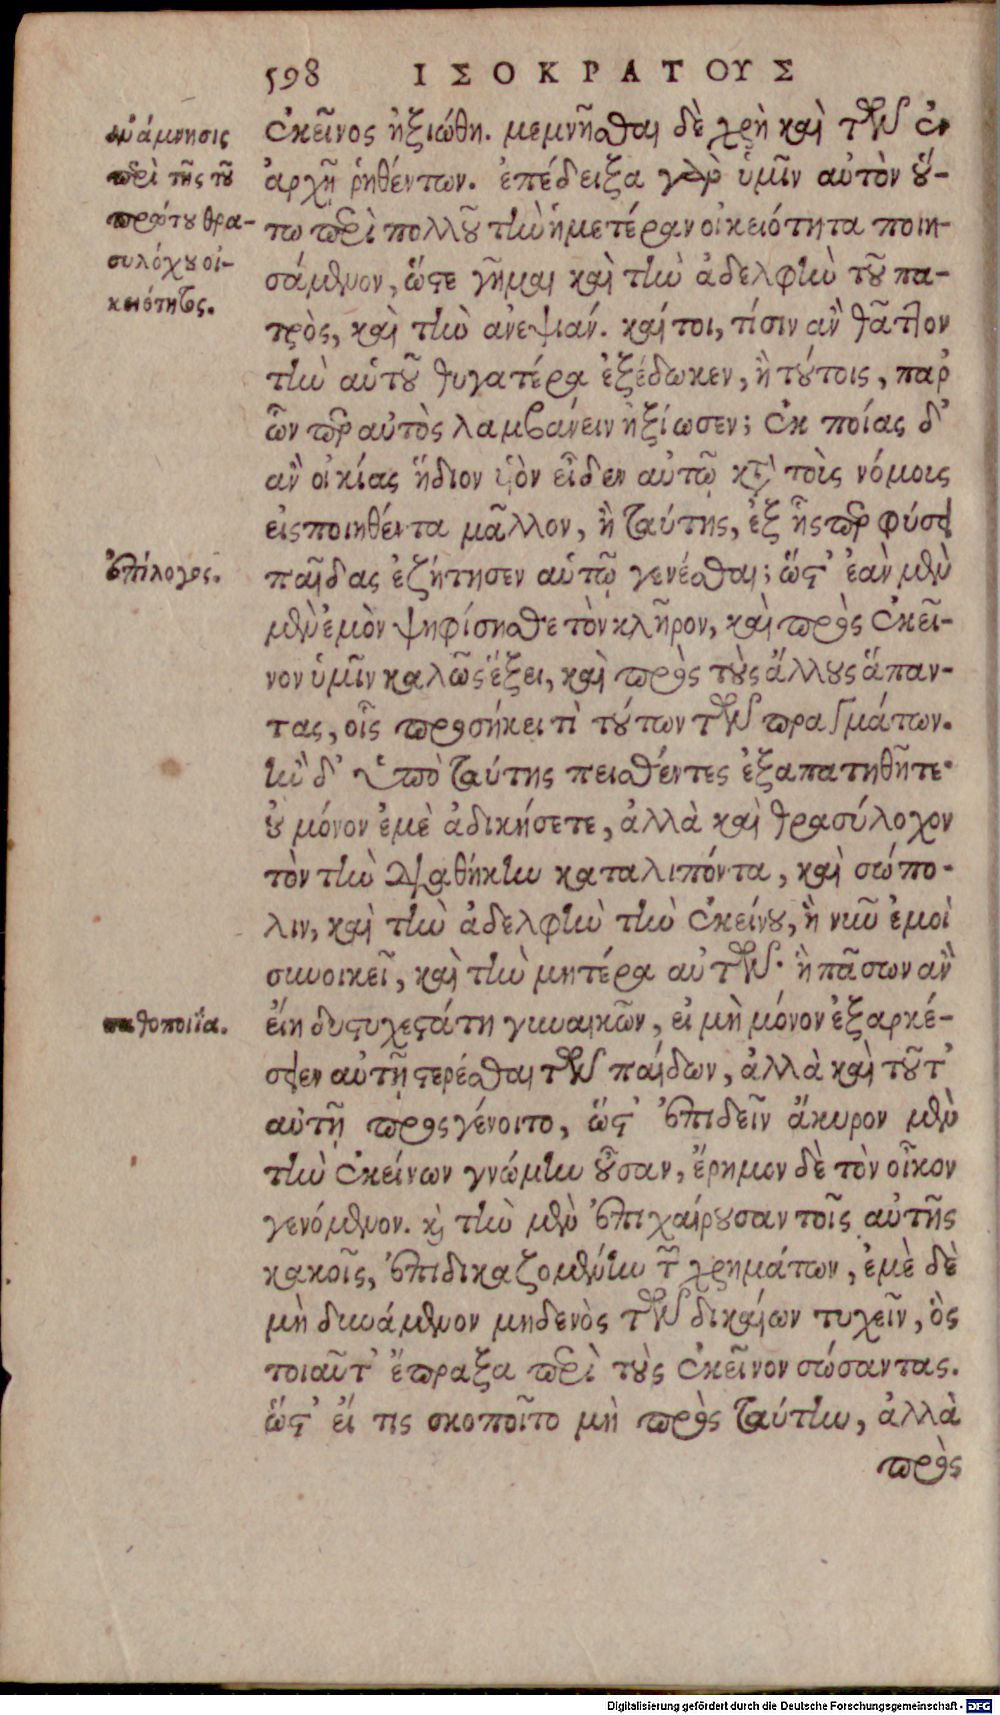 598 ΙΣΟΚΡΑΤΟΥΣ
ἀνάμνησις
περὶ τῆς τοῦ
πρώτου θρα-
συλόχου οἰ-
κειότητος.
ἐκεῖνος ἠξιώθη. μεμνῆσθαι δὲ χρὴ καὶ τῶν ἐν
ἀρχῇ ῥηθέντων. ἐπέδειξα γὰρ ὑμῖν αὐτὸν οὕ-
τω περὶ πολλοῦ τὴν ἡμετέραν οἰκειότητα ποιη-
σάμενον, ὥστε γῆμαι καὶ τὴν ἀδελφὴν τοῦ πα-
τρὸς, καὶ τὴν ἀνεψιάν. καί τοι, τίσιν ἂν θᾶττον
τὴν αὑτοῦ θυγατέρα ἐξέδωκεν, ἢ τούτοις, παρ'
ὧνπερ αὐτὸς λαμβάνειν ἠξίωσεν; ἐκ ποίας δ'
ἂν οἰκίας ἥδιον υἱὸν εἶδεν αὑτῷ κατὰ τοὺς νόμους
εἰσποιηθέντα μᾶλλον, ἢ ταύτης, ἐξ ἧσπερ φύσει
ἐπίλογος.
παῖδας ἐζήτησεν αὑτῷ γενέσθαι; ὥστ' ἐὰν μὲν
μὲν ἐμὸν ψηφίσησθε τὸν κλῆρον, καὶ πρὸς ἐκεῖ-
νον ὑμῖν καλῶς ἕξει, καὶ πρὸς τοὺς ἄλλους ἅπαν-
τας, οἷς προσήκει τὶ τούτων τῶν πραγμάτων.
ἢν δ' ὑπὸ ταύτης πεισθέντες ἐξαπατηθῆτε·
οὐ μόνον ἐμὲ ἀδικήσετε, ἀλλὰ καὶ θρασύλοχον
τὸν τὴν διαθήκην καταλιπόντα, καὶ σώπο-
λιν, καὶ τὴν ἀδελφὴν τὴν ἐκείνου, ἣ νῦν ἐμοὶ
συνοικεῖ, καὶ τὴν μητέρα αὐτῶν· ἣ πασῶν ἂν
παθοποιΐα.
εἴη δυστυχεστάτη γυναικῶν, εἰ μὴ μόνον ἐξαρκέ-
σειεν αὐτῇ στερέσθαι τῶν παίδων, ἀλλὰ καὶ τοῦτ'
αὐτῇ προσγένοιτο, ὥστ' ἐπιδεῖν ἄκυρον μὲν
τὴν ἐκείνων γνώμην οὖσαν, ἔρημον δὲ τὸν οἶκον
γενόμενον. καὶ τὴν μὲν ἐπιχαίρουσαν τοῖς αὑτῆς
κακοῖς, ἐπιδικαζομένην τῶν χρημάτων, ἐμὲ δὲ
μὴ δυνάμενον μηδενὸς τῶν δικαίων τυχεῖν, ὃς
τοιαῦτ' ἔπραξα περὶ τοὺς ἐκεῖνον σώσαντας.
ὥστ' εἴ τις σκοποῖτο μὴ πρὸς ταύτην, ἀλλὰ
πρὸς
Digitalisierung gefördert durch die Deutsche Forschungsgemeinschaft - DFG